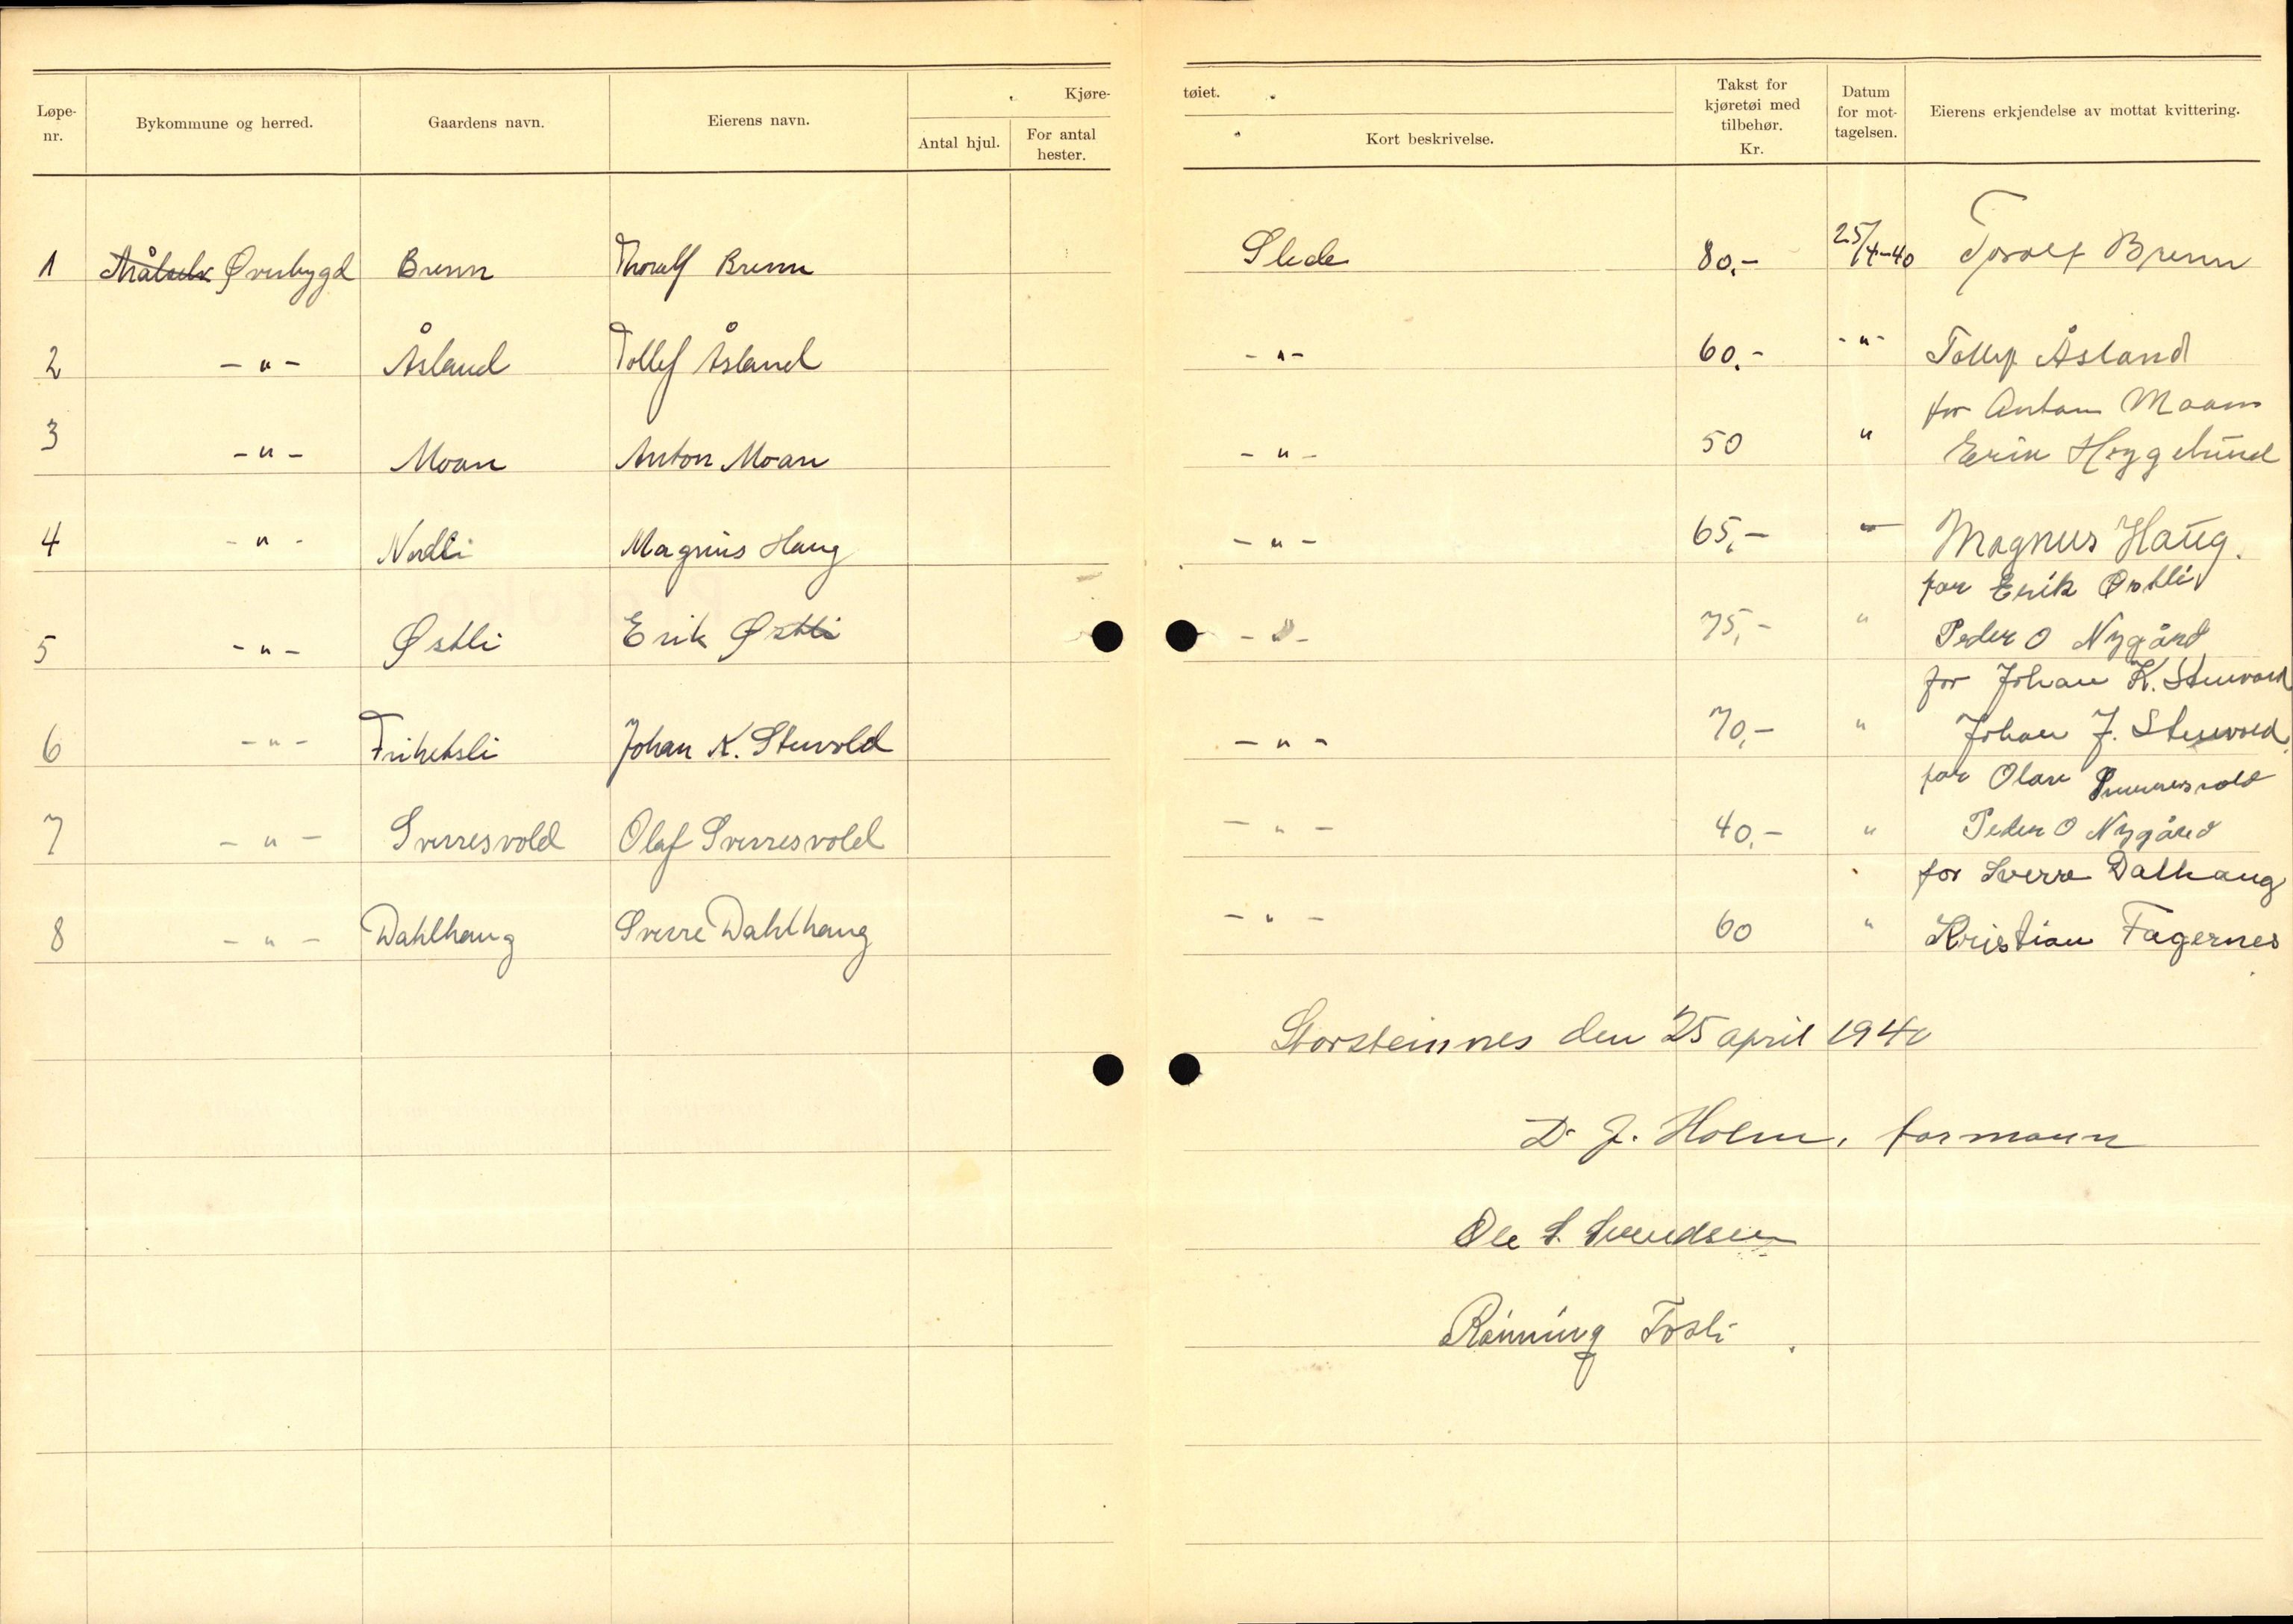 Løpe-nr. Bykommune og herred. Gaardens navn. Eierens navn. Kjøretøiet. Takst for kjøretøi med tilbehør. Kr. Datum for mottagelsen. Eierens erkjendelse av mottat kvittering.
Antal hjul. For antal hester. Kort beskrivelse.
1 Målselv Øverbygd Brenn Thoralf Brenn Slede 80.- 25/4-40 Toralf Brenn
2 -"- Åsland Tollef Åsland -"- 60.- -"- Tollef Åsland
for Anton Moan
3 -"- Moan Anton Moan -"- 50 " Erik Heggelund
4 -"- Nordli Magnus Haug -"- 65,- " Magnus Haug.
for Erik Østli
5 -"- Østli Erik Østli -"- 75,- " Peder O Nygård
for Johan K. Stenvold
6 -"- Frihetsli Johan K. Stenvold -"- 70,- " Johan J. Stenvold
for Olav
7 -"- Sverresvold Olaf Sverresvold -"- 40,- " Peder O Nygård
for Sverre Dalhaug
8 -"- Dahlhaug Sverre Dahlhaug -"- 60 " Kristian Fagernes
Storsteinnes den 25 april 1940
D. J. Holm, formann
Ole S. Svendsen
Rønning Fosli